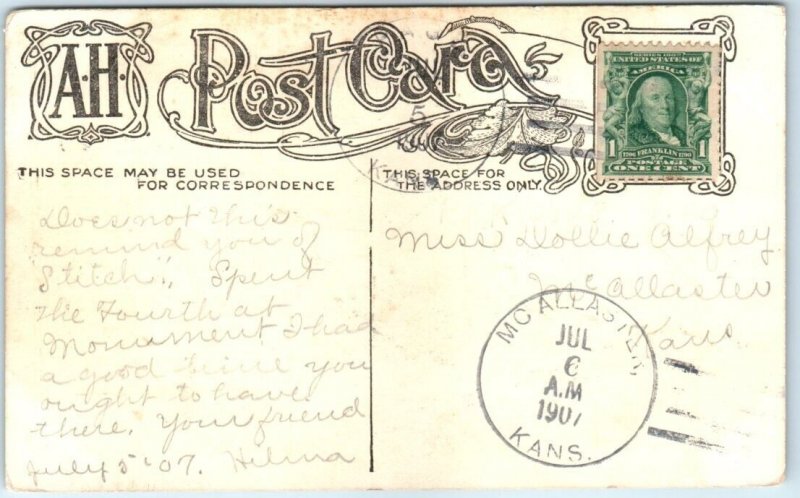 A·H·
Post Card
SERIES 1902
UNITED STATES OF
AMERICA
1 1
1706 FRANKLIN 1790
POSTAGE
ONE CENT
5
KANS
THIS SPACE MAY BE USED
FOR CORRESPONDENCE
THIS SPACE FOR
THE ADDRESS ONLY.
Does not this
remind you of
"Stitch". Spent
the Fourth at
Monument I had
a good time you
ought to have
there. Your friend
July 5 '07. Hilma
Miss Dollie Alfrey
McAllaster
Kans
MC ALLASTER,
JUL
6
A.M
1907
KANS.